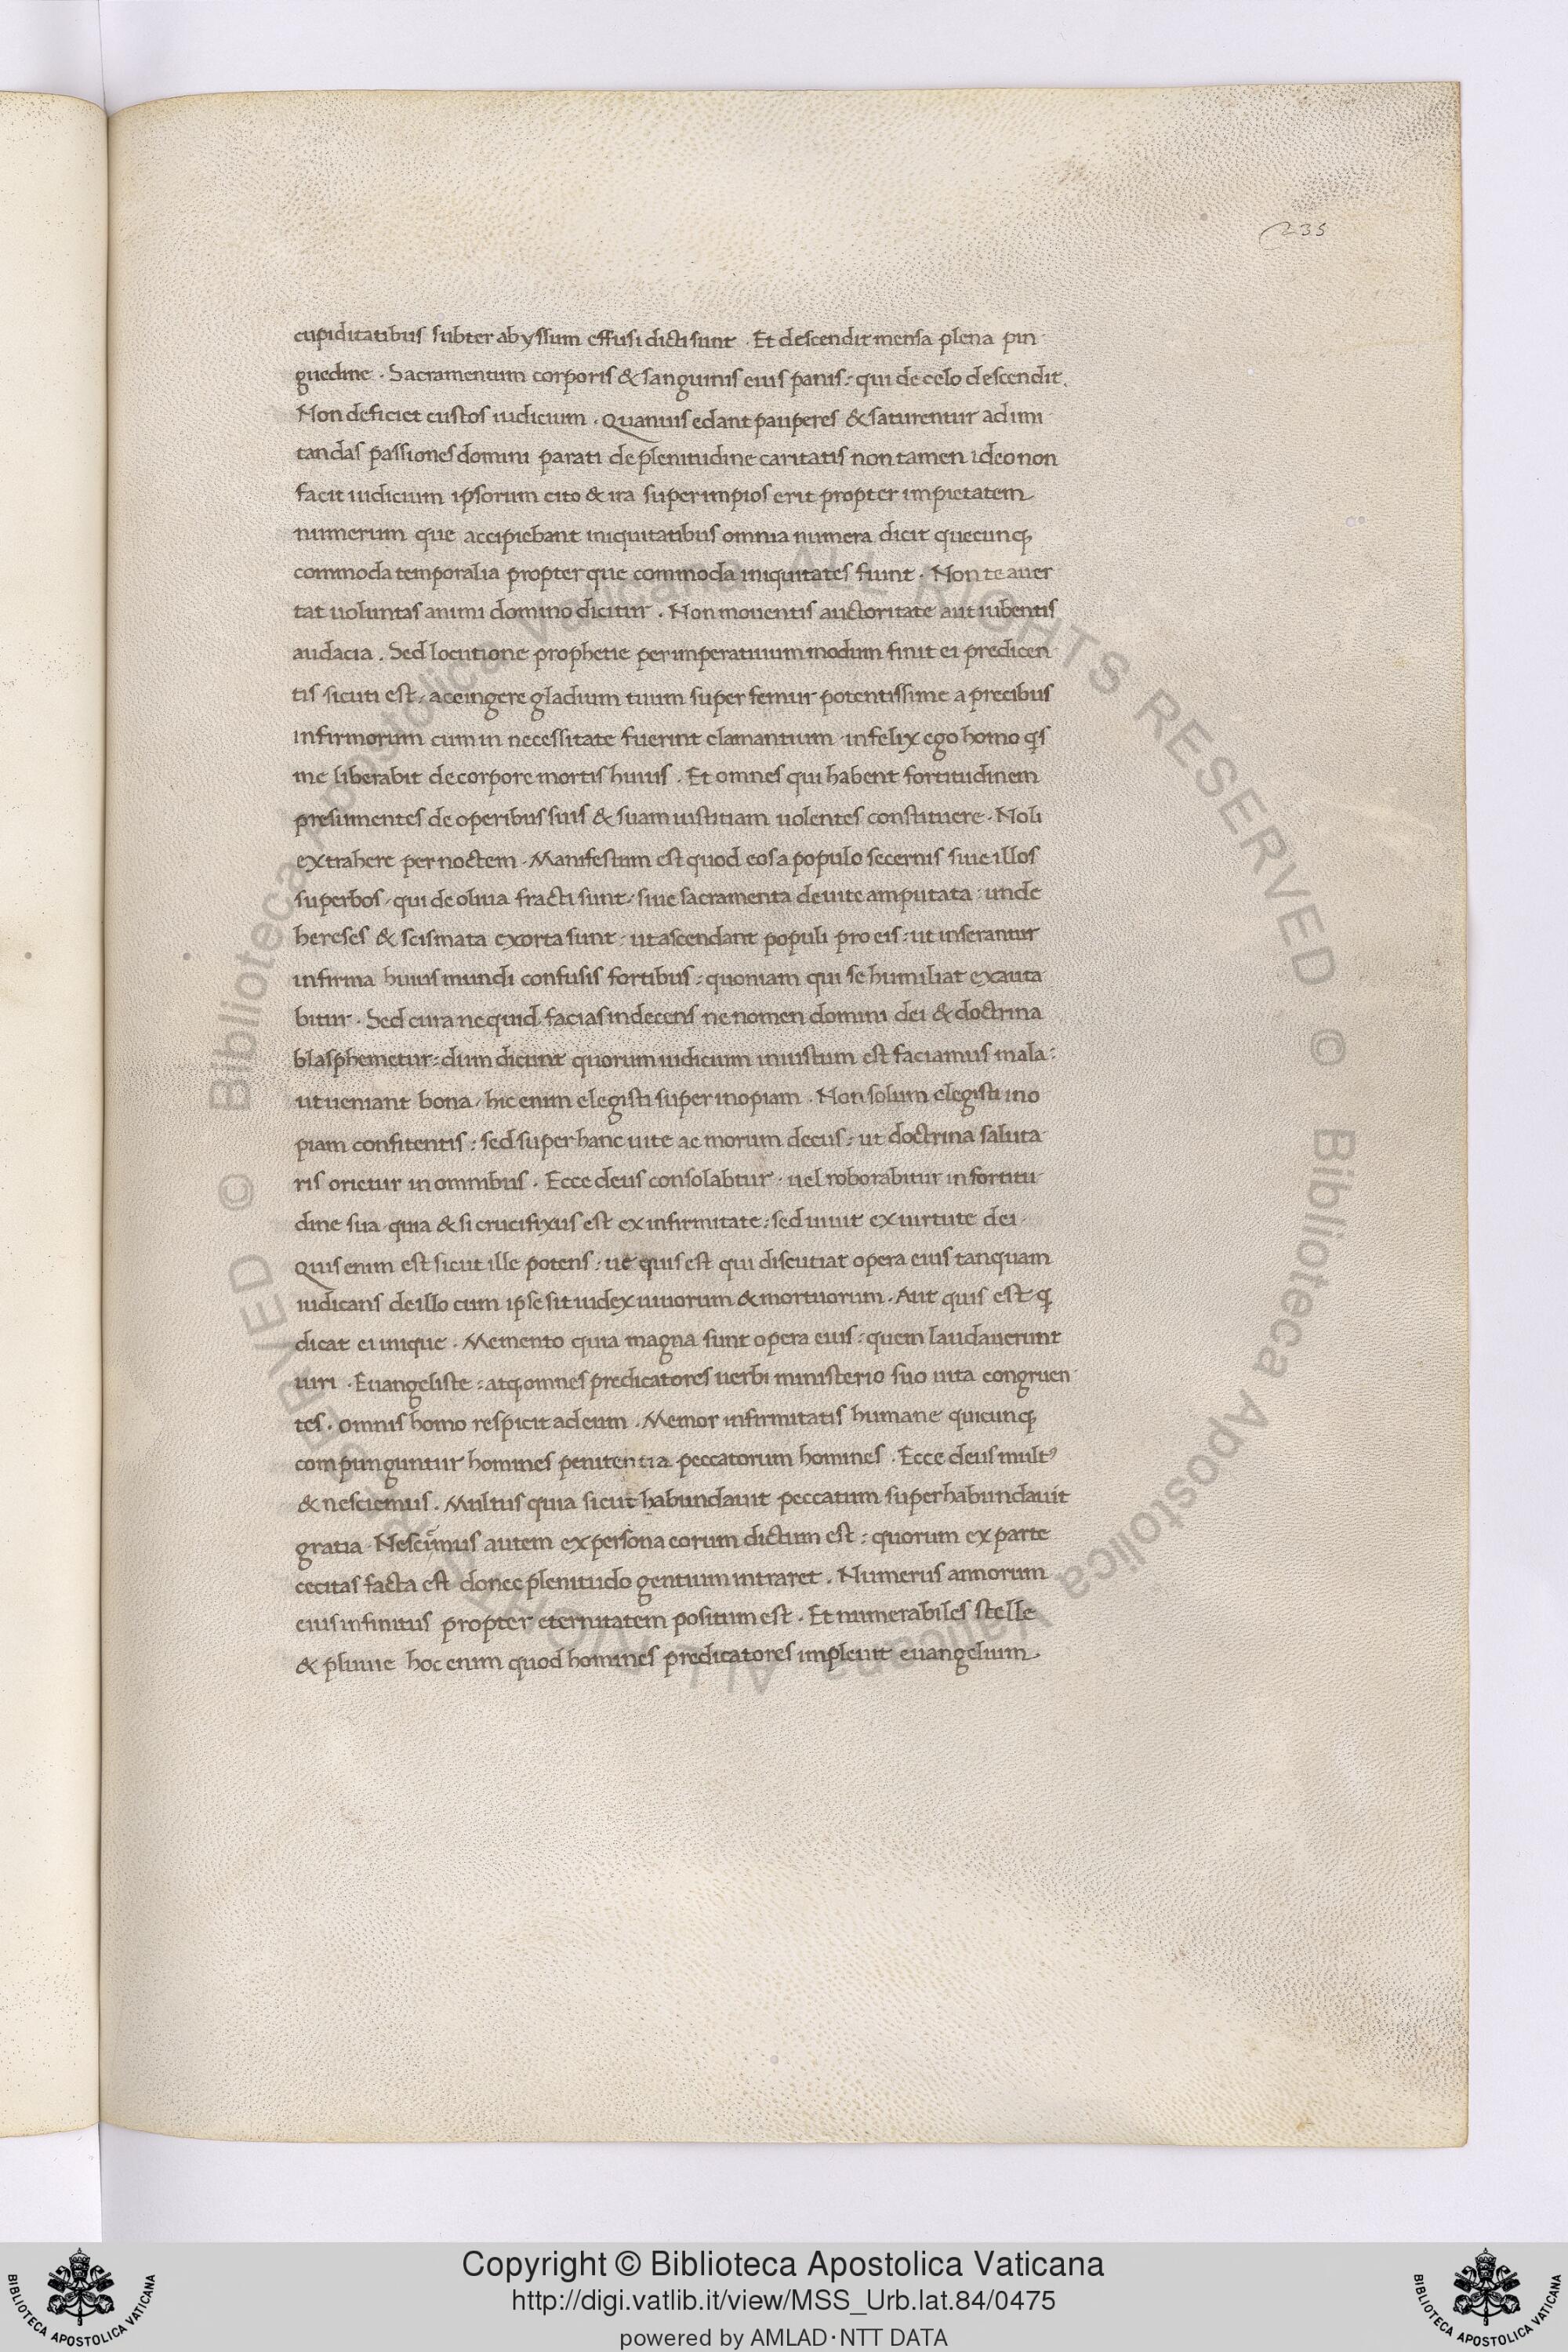 235
cupiditatibus subter abyssum effusi dicti sunt . Et descendit mensa plena pin
guedine . Sacramentum corporis & sanguinis eius panis : qui de celo descendit .
Non deficiet custos iudicium . Quamuis edant pauperes & saturentur ad imi
tandas passiones domini parati de plenitudine caritatis non tamen ideo non
facit iudicium ipsorum cito & ira super impios erit propter impietatem
numerum que accipiebant iniquitatibus omnia numera dicit quecunq;
commoda temporalia propter que commoda iniquitates fiunt . Non te auer
tat uoluntas animi domino dicitur . Non mouentis auctoritate aut iubentis
audacia . Sed locutione prophetie per imperatiuum modum finit ei predicen
tis sicuti est . accingere gladium tuum super femur potentissime a precibus
infirmorum cum in necessitate fuerint clamantium infelix ego homo qs
me liberabit de corpore mortis huius . Et omnes qui habent fortitudinem
presumentes de operibus suis & suam iustitiam uolentes constituere . Noli
extrahere per noctem . Manifestum est quod eos a populo secernis siue illos
superbos . qui de oliua fracti sunt . siue sacramenta de uite amputata : unde
hereses & scismata exorta sunt : ut ascendant populi pro eis : ut inserantur
infirma huius mundi confusis fortibus : quoniam qui se humiliat exauta
bitur . Sed cura ne quid facias indecens ne nomen domini dei & doctrina
blasphemetur : dum dicunt quorum iudicium iniustum est faciamus mala :
ut ueniant bona . hic enim elegisti super inopiam . Non solum elegisti ino
piam confitentis : sed super hanc uite ac morum decus : ut doctrina saluta
ris orietur in omnibus . Ecce deus consolabtur . uel roborabitur in fortitu
dine sua quia & si crucifixus est ex infirmitate : sed uiuit ex uirtute dei .
Quis enim est sicut ille potens : ue quis est qui discutiat opera eius tanquam
iudicans de illo cum ipse sit iudex uiuorum & mortuorum . Aut quis est q
dicat ei inique . Memento quia magna sunt opera eius : quem laudauerunt
uiri . Euangeliste : atq; omnes predicatores uerbi ministerio suo uita congruen
tes . omnis homo respicit ad eum . Memor infirmitatis humane quicunq;
compunguntur homines penitentia peccatorum homines . Ecce deus mult9
& nesciemus . Multus quia sicut habundauit peccatum superhabundauit
gratia . Nescimus autem ex persona eorum dictum est : quorum ex parte
cecitas facta est donec plenitudo gentium intraret . Numerus annorum
eius infinitus propter eternitatem positum est . Et numerabiles stelle
& pluuie hoc enim quod homines predicatores impleuit euangelium
© Biblioteca Apostolica Vaticana ALL RIGHTS RESERVED © Biblioteca Apostolica Vaticana ALL RIGHTS RESERVED
Copyright © Biblioteca Apostolica Vaticana
http://digi.vatlib.it/view/MSS_Urb.lat.84/0475
powered by AMLAD·NTT DATA
BIBLIOTECA APOSTOLICA VATICANA
BIBLIOTECA APOSTOLICA VATICANA